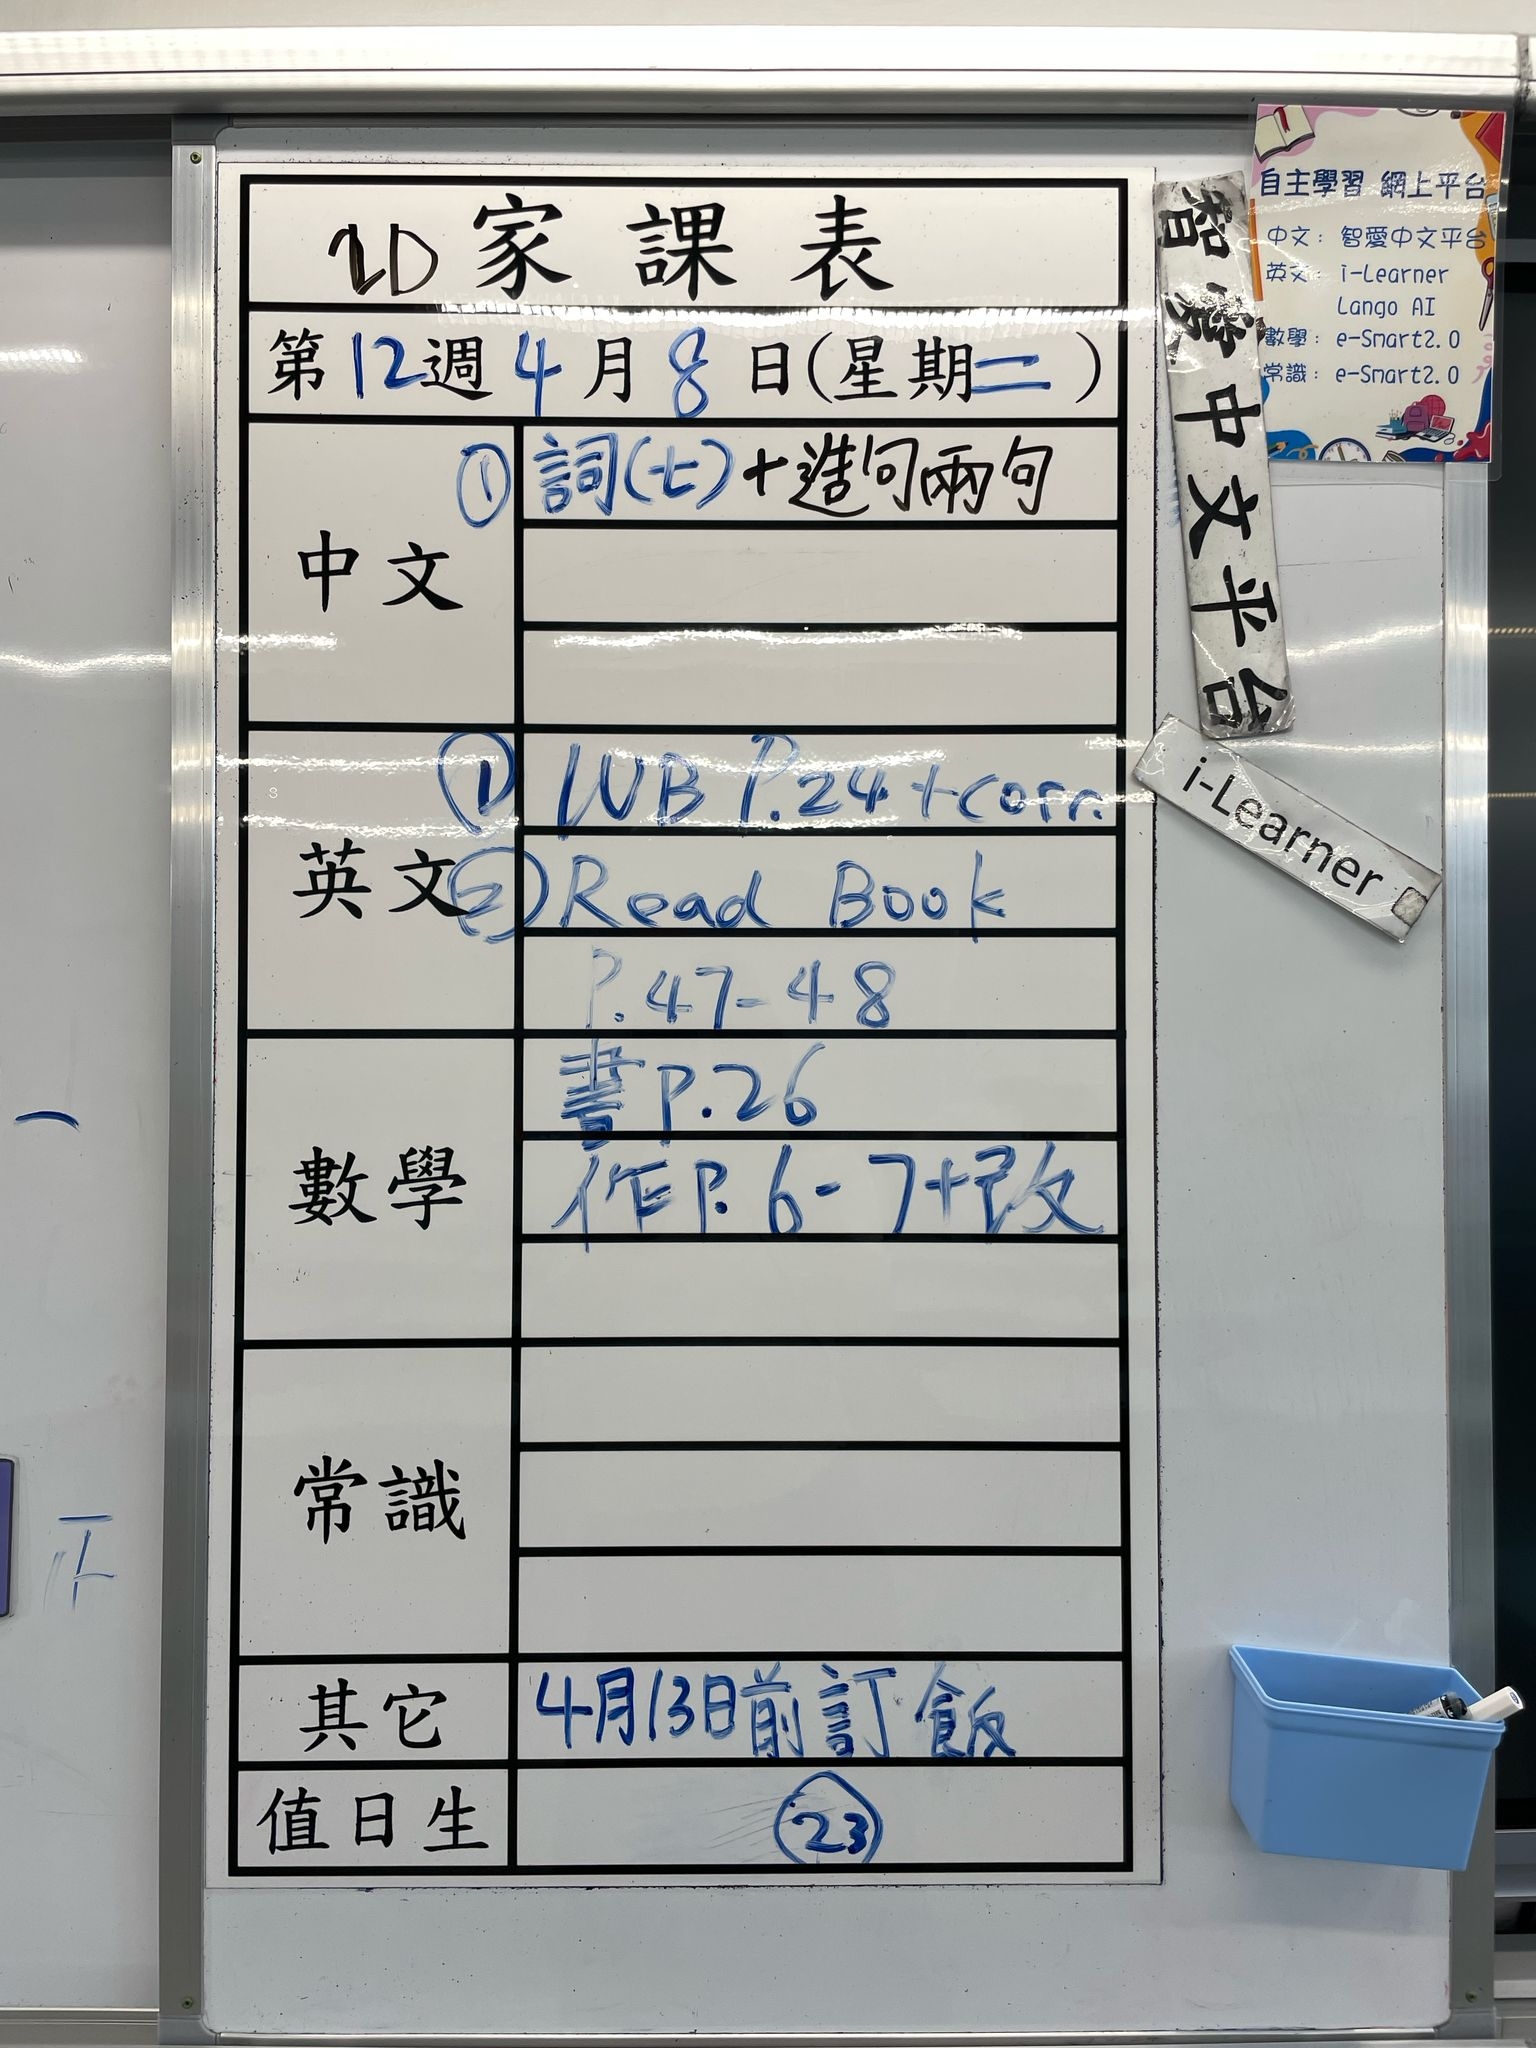 2D 家課表
第12週4月8日(星期二)
中文
① 詞(七)+造句兩句
英文
① WB P.24 + corr.
② Read Book
P.47-48
數學
書P.26
作P.6-7+改
常識
其它
4月13日前訂飯
值日生
23
智愛中文平台
i-Learner
自主學習 網上平台
中文：智愛中文平台
英文：i-Learner
Lango AI
數學：e-Smart2.0
常識：e-Smart2.0